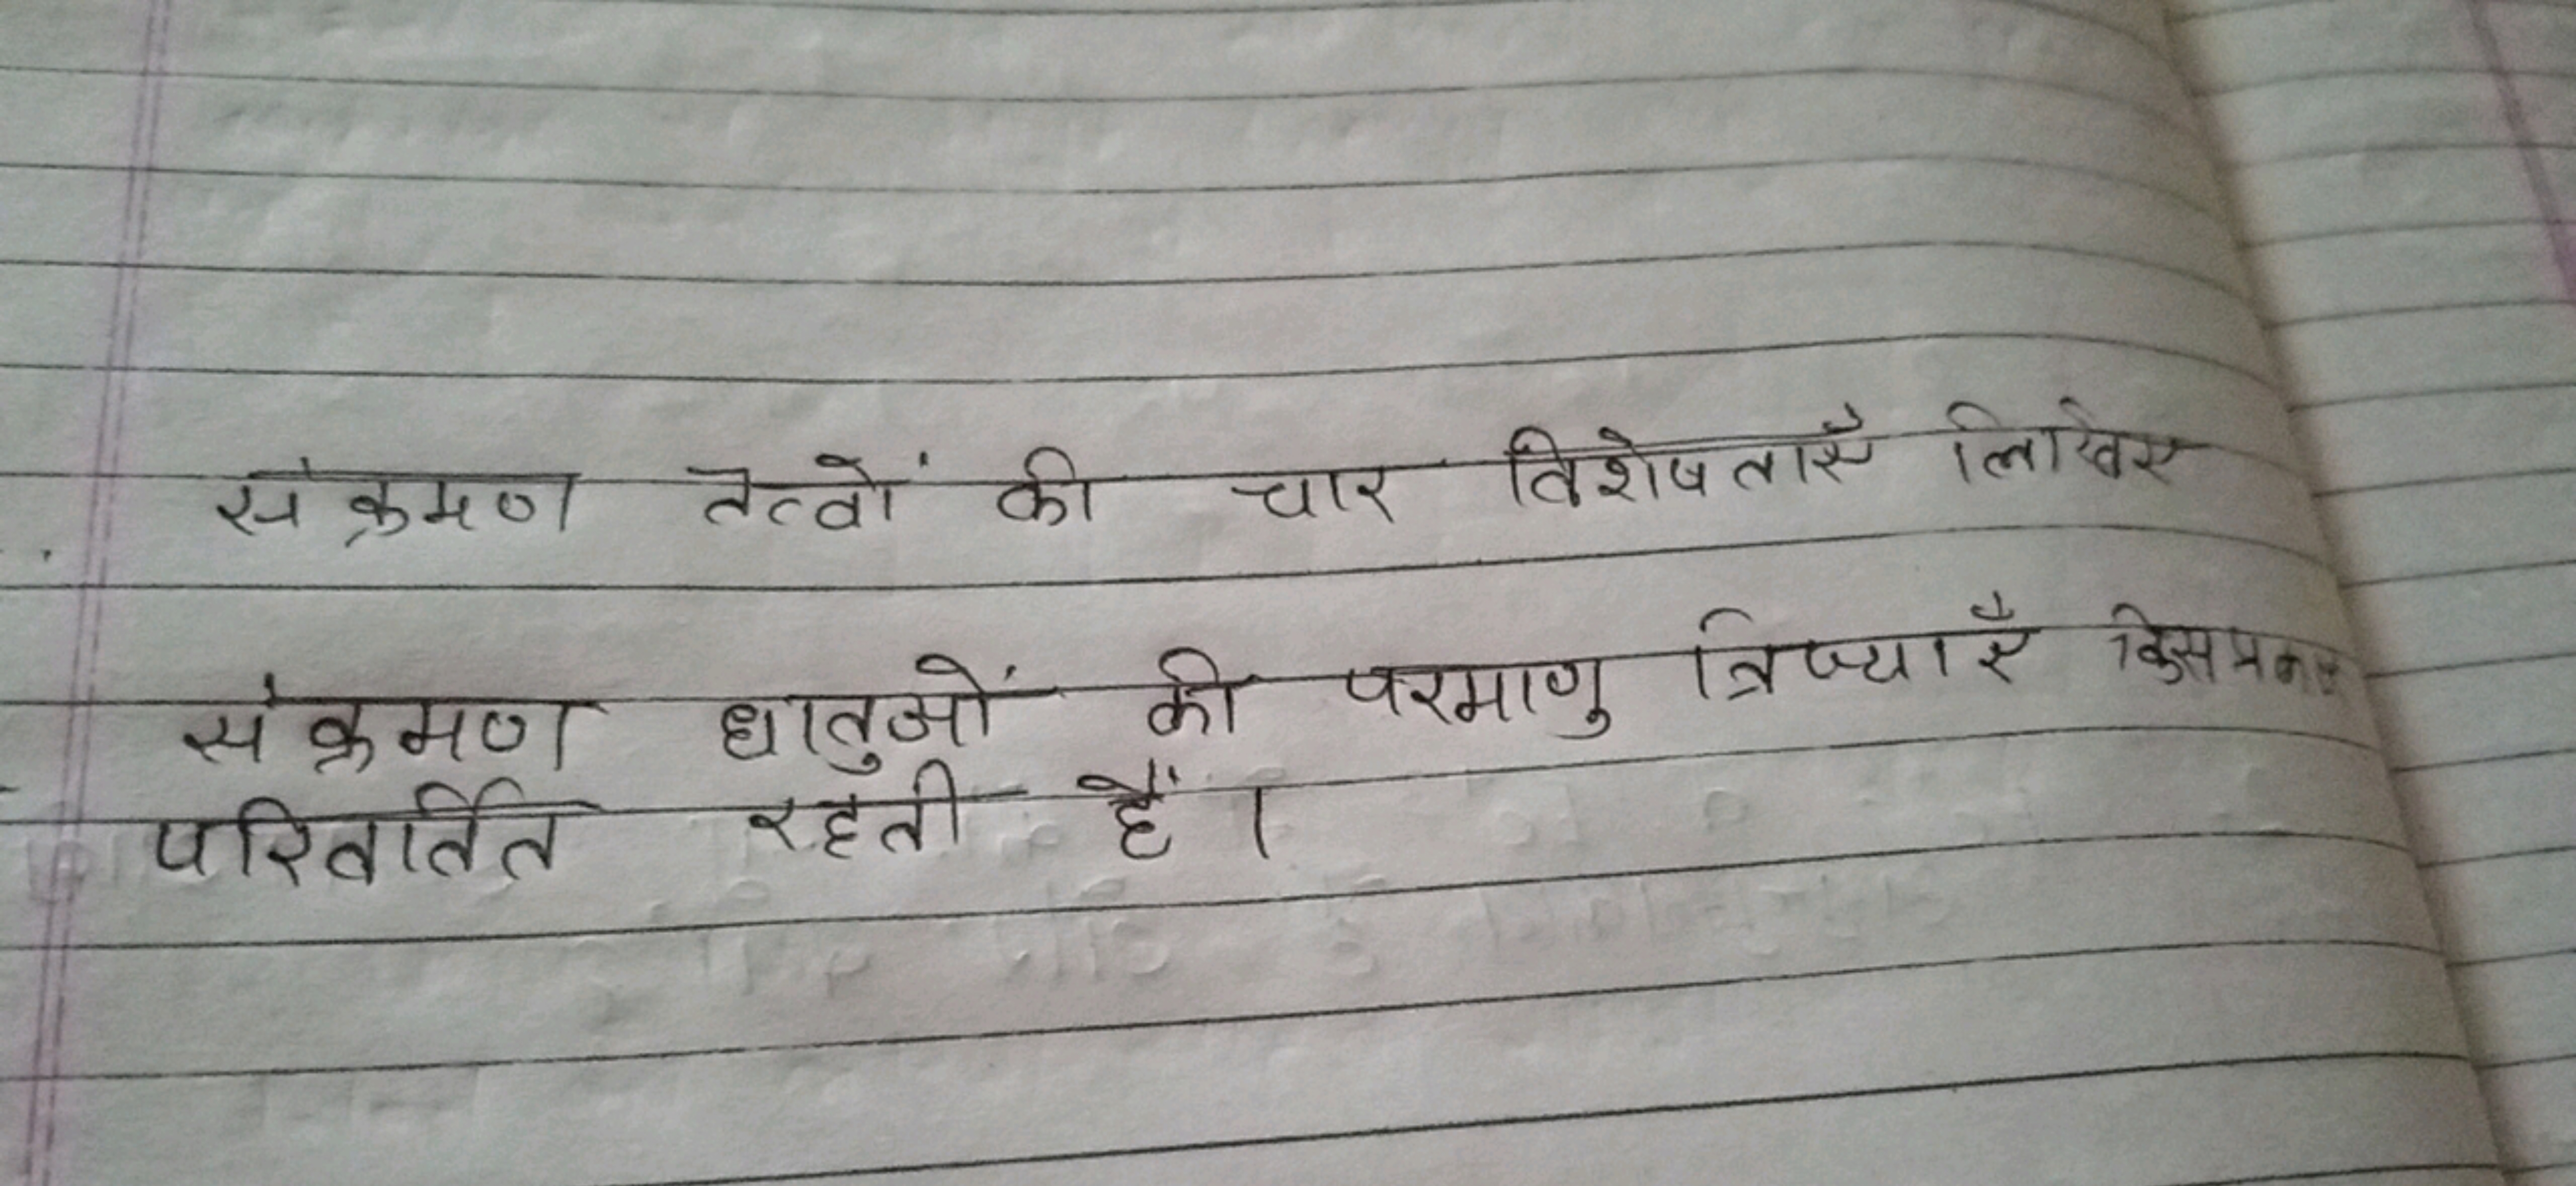 संक्रमण तत्वों की चार विशेषताएँ लिखिए
संक्रमण धातुओं की परमाणु त्रिज्याएँ किस प्रकार
परिवर्तित रहती हैं।